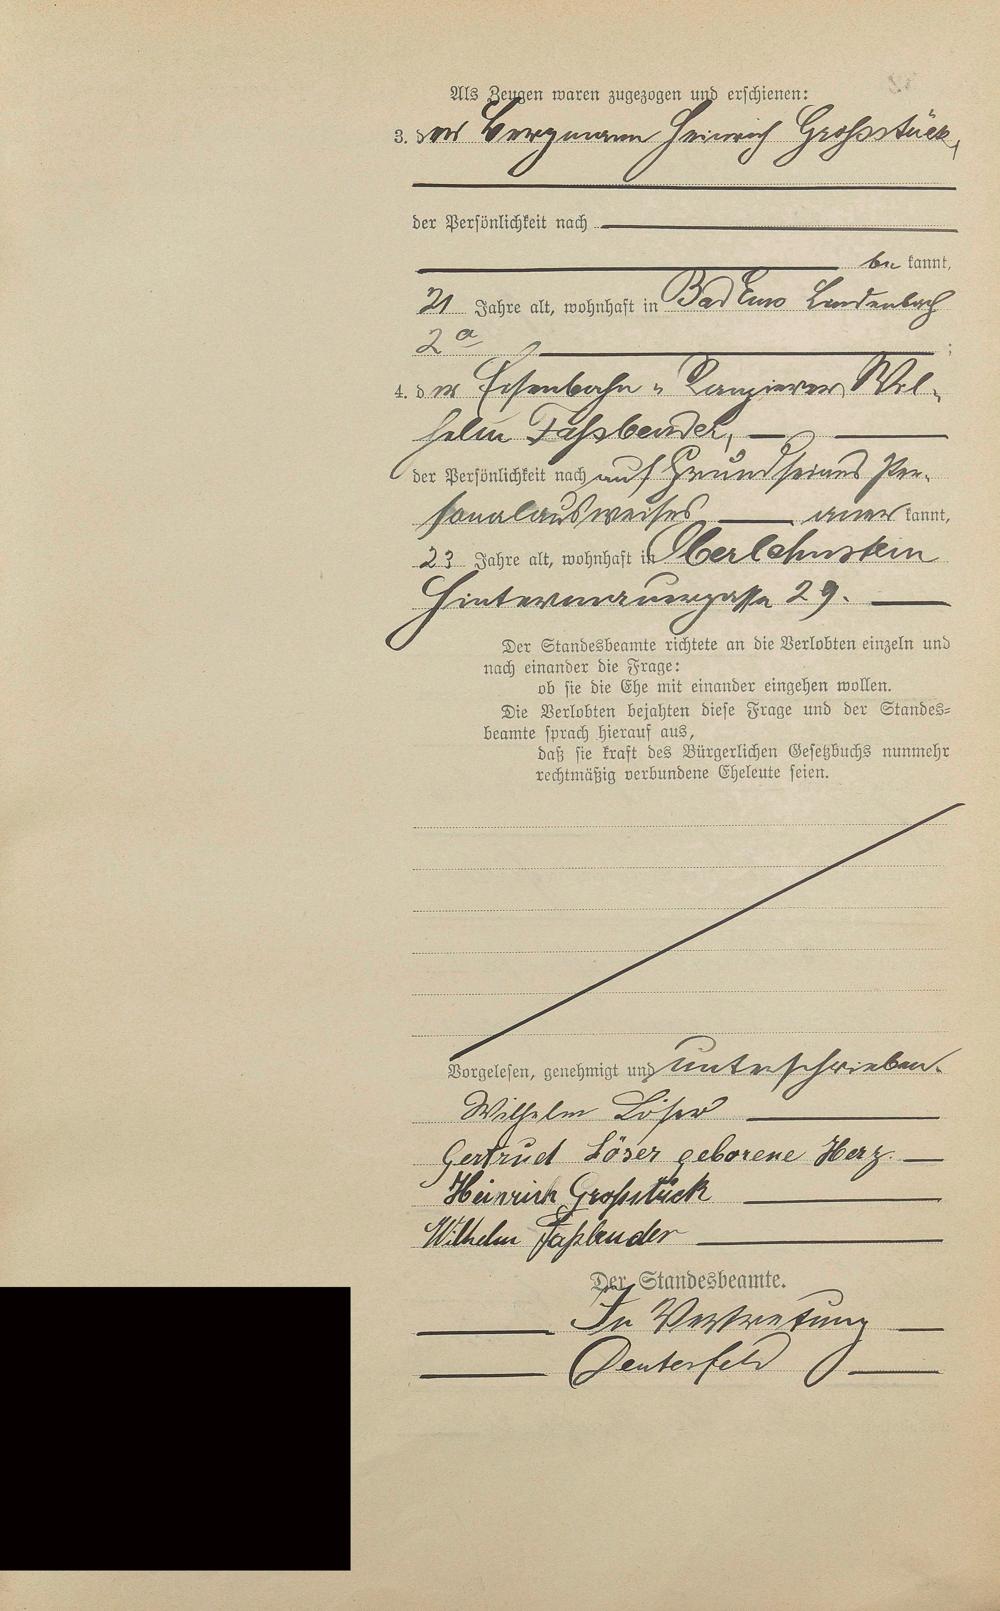 Als Zeugen waren zugezogen und erschienen:
3. der Bergmann Heinrich Großstück,
der Persönlichkeit nach
be kannt,
21 Jahre alt, wohnhaft in Bad Ems
2a ;
4. der Eisenbahn - Rangierer Wil-
helm Faßbender,
der Persönlichkeit nach auf Grund seines Per-
sonalausweises aner kannt,
23 Jahre alt, wohnhaft in Oberlahnstein
Hintermauergasse 29.
Der Standesbeamte richtete an die Verlobten einzeln und
nach einander die Frage:
ob sie die Ehe mit einander eingehen wollen.
Die Verlobten bejahten diese Frage und der Standes-
beamte sprach hierauf aus,
daß sie kraft des Bürgerlichen Gesetzbuchs nunmehr
rechtmäßig verbundene Eheleute seien.
Vorgelesen, genehmigt und unterschrieben.
Wilhelm Löser
Gertrud Löser geborene Herz.
Heinrich Großstück
Wilhelm Faßbender
Der Standesbeamte.
In Vertretung